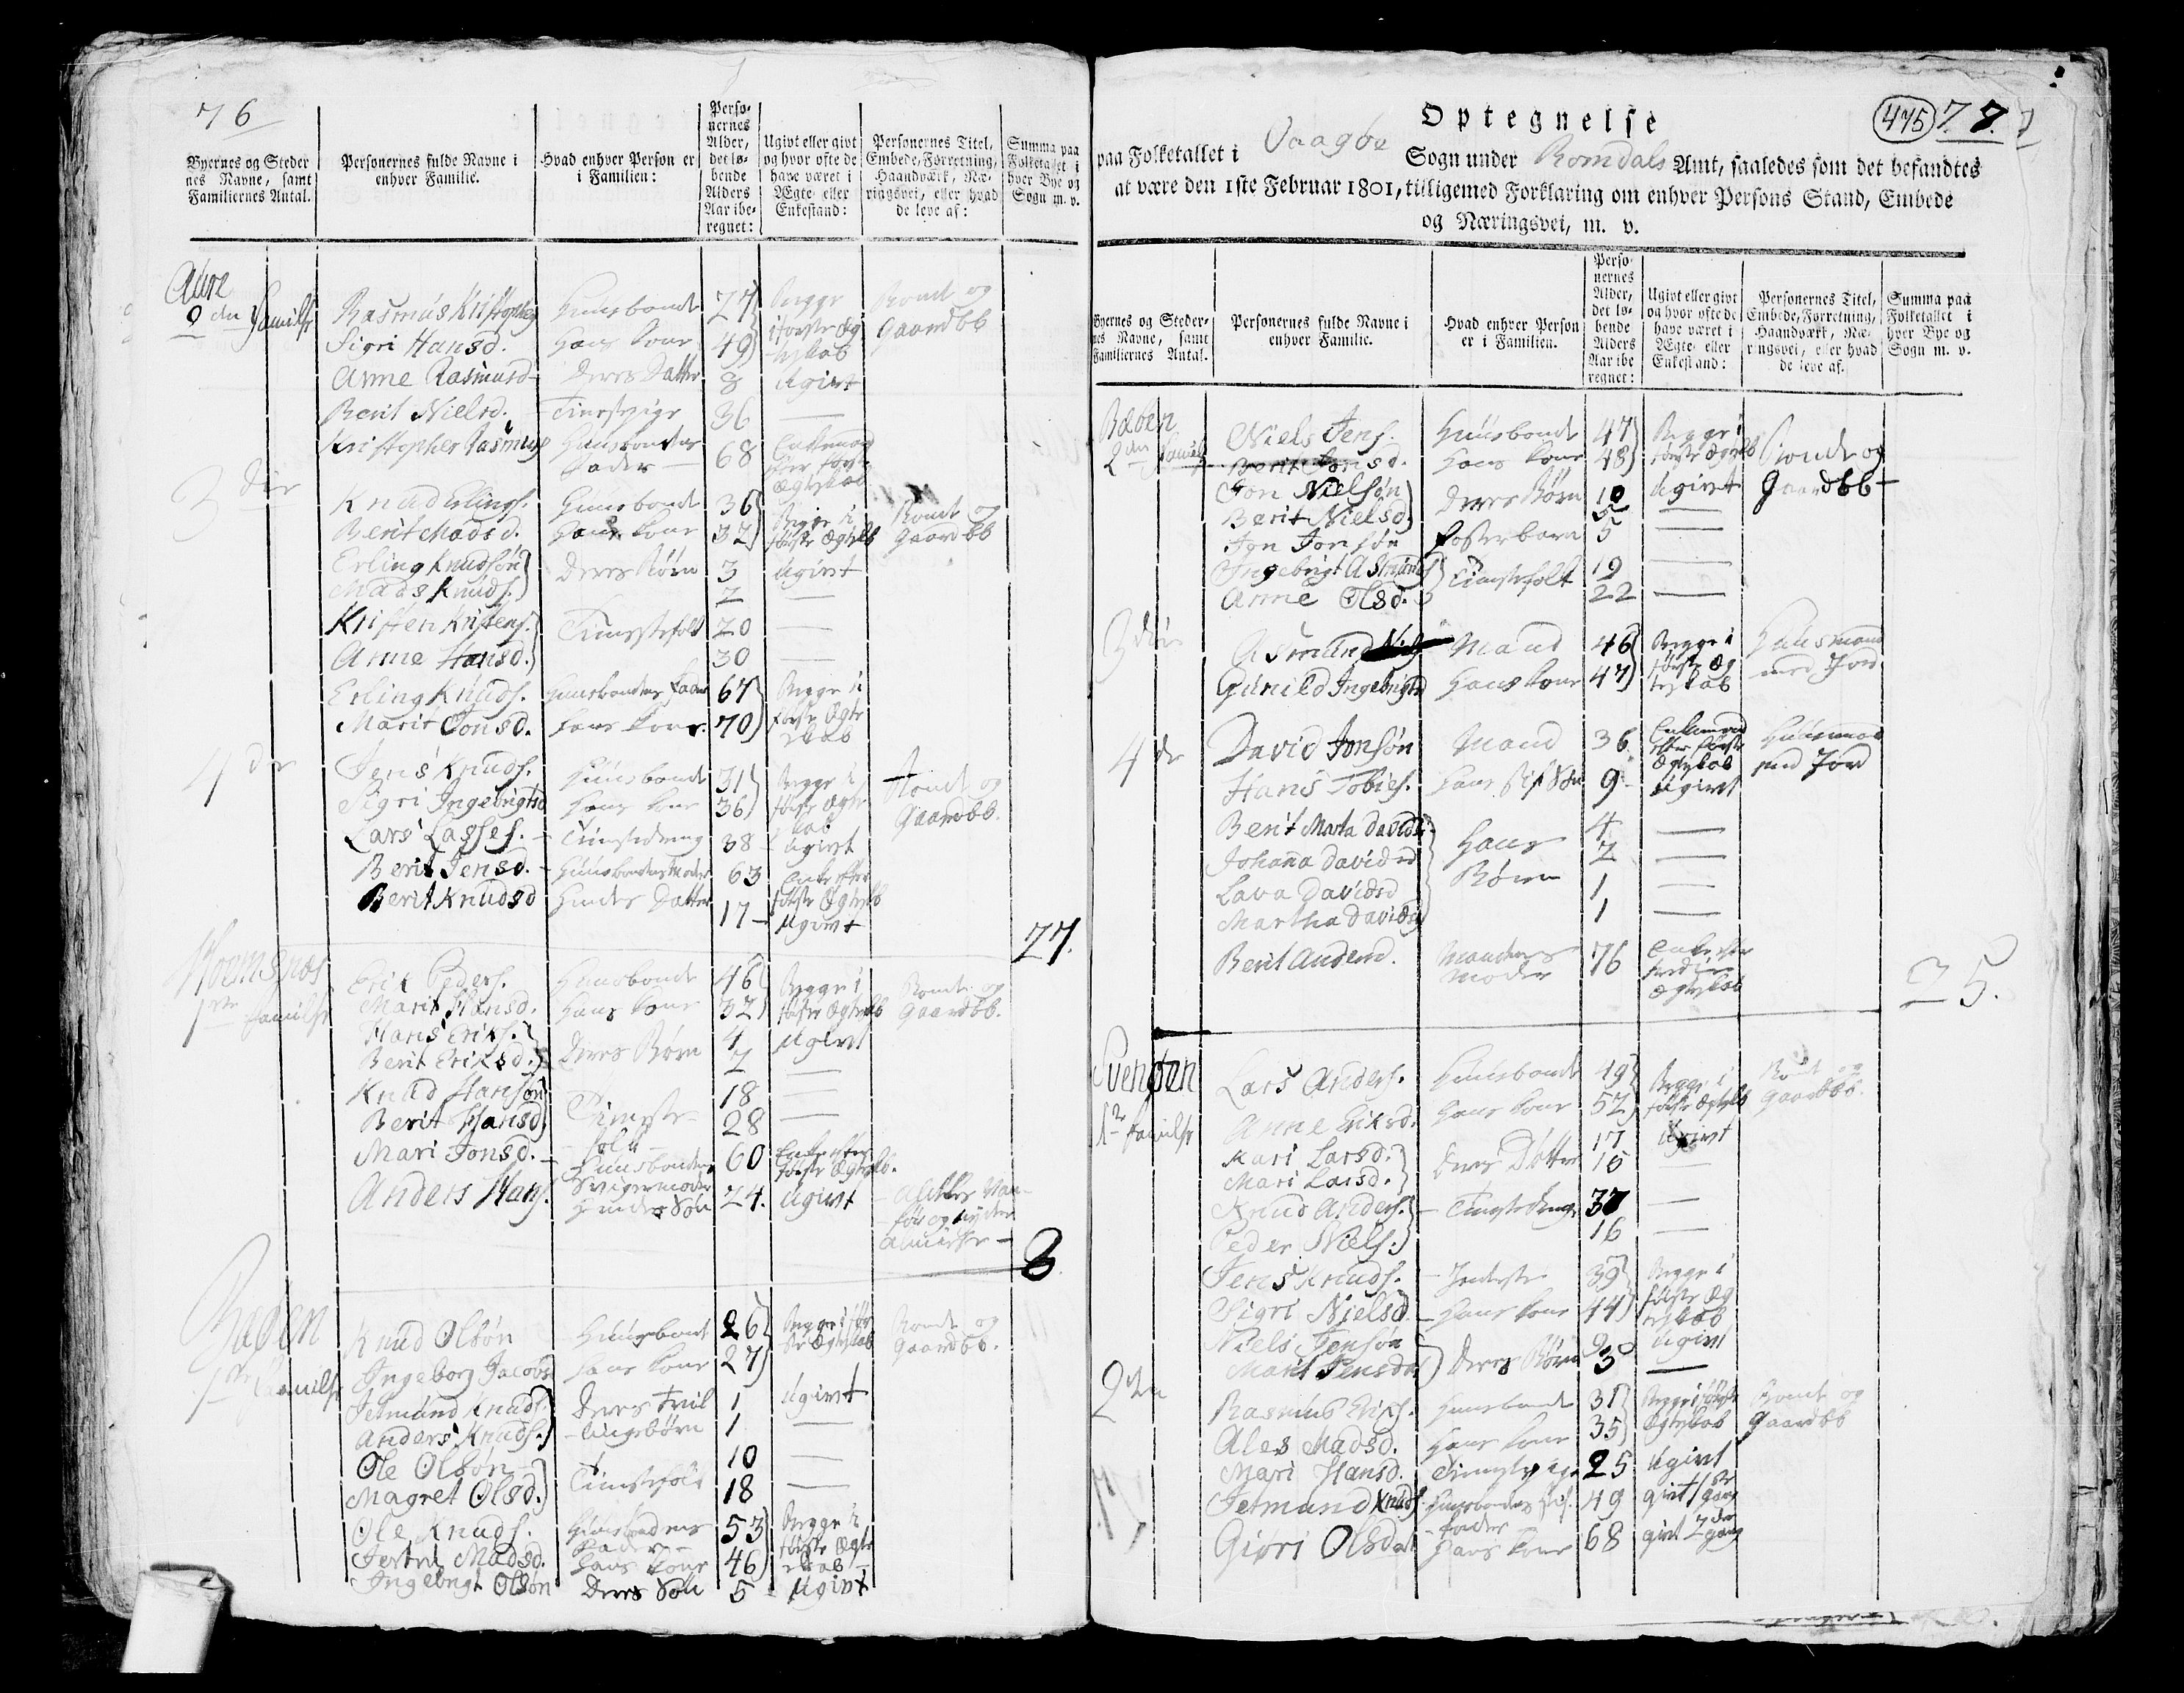 76
Byernes og Steder
nes Navne, samt
Familiernes Antal.
Personernes fulde Navne i
enhver Familie.
Hvad enhver Person er
i Familien:
Perso-
nernes
Alder,
det lø-
bende
Alders
Aar ibe-
regnet:
Ugivt eller givt
og hvor ofte de
have været i
Ægte- eller
Enkestand:
Personernes Titel,
Embede, Forretning,
Haandværk, Næ-
ringsvei, eller hvad
de leve af:
Summa paa
Folketallet i
hver Bye og
Sogn m. v.
Aure
2den Familie Rasmus Huusbonde 27 Begge Bonde og
Sigri Hansd. Hans Kone 49 i første Æg Gaardbb
teskab
Anne Rasmusd Deres Datter 8 Ugivt
Berit Nielsd. Tienstepige 36 —
Kristopher Rasmus Huusbondes 68 Enkemand
Fader efter første
Ægteskab
3die Knud Erlings. Huusbonde 36 Begge i Bonde og
Berit Madsd. Hans Kone 32 første Ægteskb Gaardbb
Erling Knudsøn Deres Børn 3 Ugivt
Mads Knuds. 2 —
Kristen Kristens. Tienestefolk 20 —
Anne Hansd. 30 —
Erling Knuds. Huusbondens Fader 67 Begge i
Marit Jonsd. Hans Kone. 70 første Ægte
skab
4de Jens Knuds. Huusbonde 31 Begge i Bonde og
Sigri Ingebrigtsd Hans Kone 36 første Ægte Gaardbb.
skab
Lars Lasses. Tienestedreng 38 Ugivt
Berit Jensd. Huusbondens Moder 63 Enke efter
første Ægteskb
Berit Knudsd Hendes Datter 17 Ugivt
27.
1ste Familie Erik Peders. Huusbonde 46 Begge i Bonde og
Marit Hansd. Hans Kone 32 første Ægteskb Gaardbb.
Hans Eriks. Deres Børn 4 Ugivt
Berit Eriksd. 2 —
Knud Hansøn Tieneste- 18 —
Berit Hansd folk 28 —
Mari Jonsd. Huusbondens 60 Enke efter
Svigermoder første Ægteskb.
Anders Hans. Hendes Søn 24. Ugivt Van-
før og nyder
Almisse —
8
Bagøen
1ste Familie Knud Olsøn Huusbonde 26 Begge i før Bonde og
Ingeborg Jacobs Hans Kone 27 ste Ægteskab Gaardbb.
Jetmund Knuds. Deres Tvil 1 Ugivt
Anders Knuds. lingebørn 1 —
Ole Olsøn Tienstefolk 10 —
Magret Olsd. 18 —
Ole Knuds. Huusbondens 53 Begge i
Fader første Ægte
Madsd. Hans Kone 46 skab
Ingebrigt Olsøn Deres Søn 5 Ugivt
Optegnelse
475 77
paa Folketallet i Vaagøe Sogn under Romdals Amt, saaledes som det befandtes
at være den 1ste Februar 1801, tilligemed Forklaring om enhver Persons Stand, Embede
og Næringsvei, m. v.
Byernes og Steder-
nes Navne, samt
Familiernes Antal.
Personernes fulde Navne i
enhver Familie.
Hvad enhver Person
er i Familien.
Perso-
nernes
Alder,
det lø-
bende
Alders
Aar ibe
regnet:
Ugivt eller givt
og hvor ofte de
have været i
Ægte- eller
Enkestand:
Personernes Titel,
Embede, Forretning,
Haandværk, Næ-
ringsvei, eller hvad
de leve af.
Summa paa
Folketallet i
hver Bye og
Sogn m. v.
2den Familie Niels Jens. Huusbonde 47 Begge i Bonde og
Berit Jonsd. Hans Kone 48 første Ægteskb Gaardbb
Jon Nielsøn Deres Børn 10 Ugivt
Berit Nielsd. 5 —
Jon Jonsøn Fosterbarn 5 —
Ingebrigt Asmunds Tienstefolk 19 —
Anne Olsd. 22 —
3die Asmund Mand 46 Begge i Huusmand
Gunild Ingebrigtsd Hans Kone 47 første Æg med Jord
teskab
4de David Jonsøn Mand 36 Enkemand Huusmand
efter første med Jord
Ægteskab
Hans Tobies. Hans Stif Søn 9 Ugivt
Berit Marta Davidsd. Hans 4 —
Johanna Davidsd Børn 2 —
Lava Davidsd 1 —
Martha Davidsd 1 —
Berit Andersd. Mandens 76 Enke efter
Moder tredie
Ægteskab
25.
Svenøen
1ste Familie Lars Anders. Huusbonde 49 Begge i Bonde og
Anne Eriksd. Hans Kone 52 første Ægteskb Gaardbb.
Kari Larsd. Deres Døttre 17 Ugivt
Mari Larsd. 15 —
Knud Anders. Tienstedrenge 37 —
Peder Niels. 16 —
Jens Knuds. Inderste 39 Begge i
Sigri Nielsd Hans Kone 44 første Æg
teskab
Niels Jensøn Deres Børn 9 Ugivt
Marit Jensdat 3 —
2den Rasmus Eriks. Huusbonde 31 Begge i første Bonde og
Ales Madsd. Hans Kone 35 Ægteskab Gaardbb
Mari Hansd. Tienstepige 25 Ugivt
Jetmund Knuds. Huusbondens Stif- 49 givt 1ste Gang
fader
Giøri Olsdat Hans Kone 68 givt 2den gang